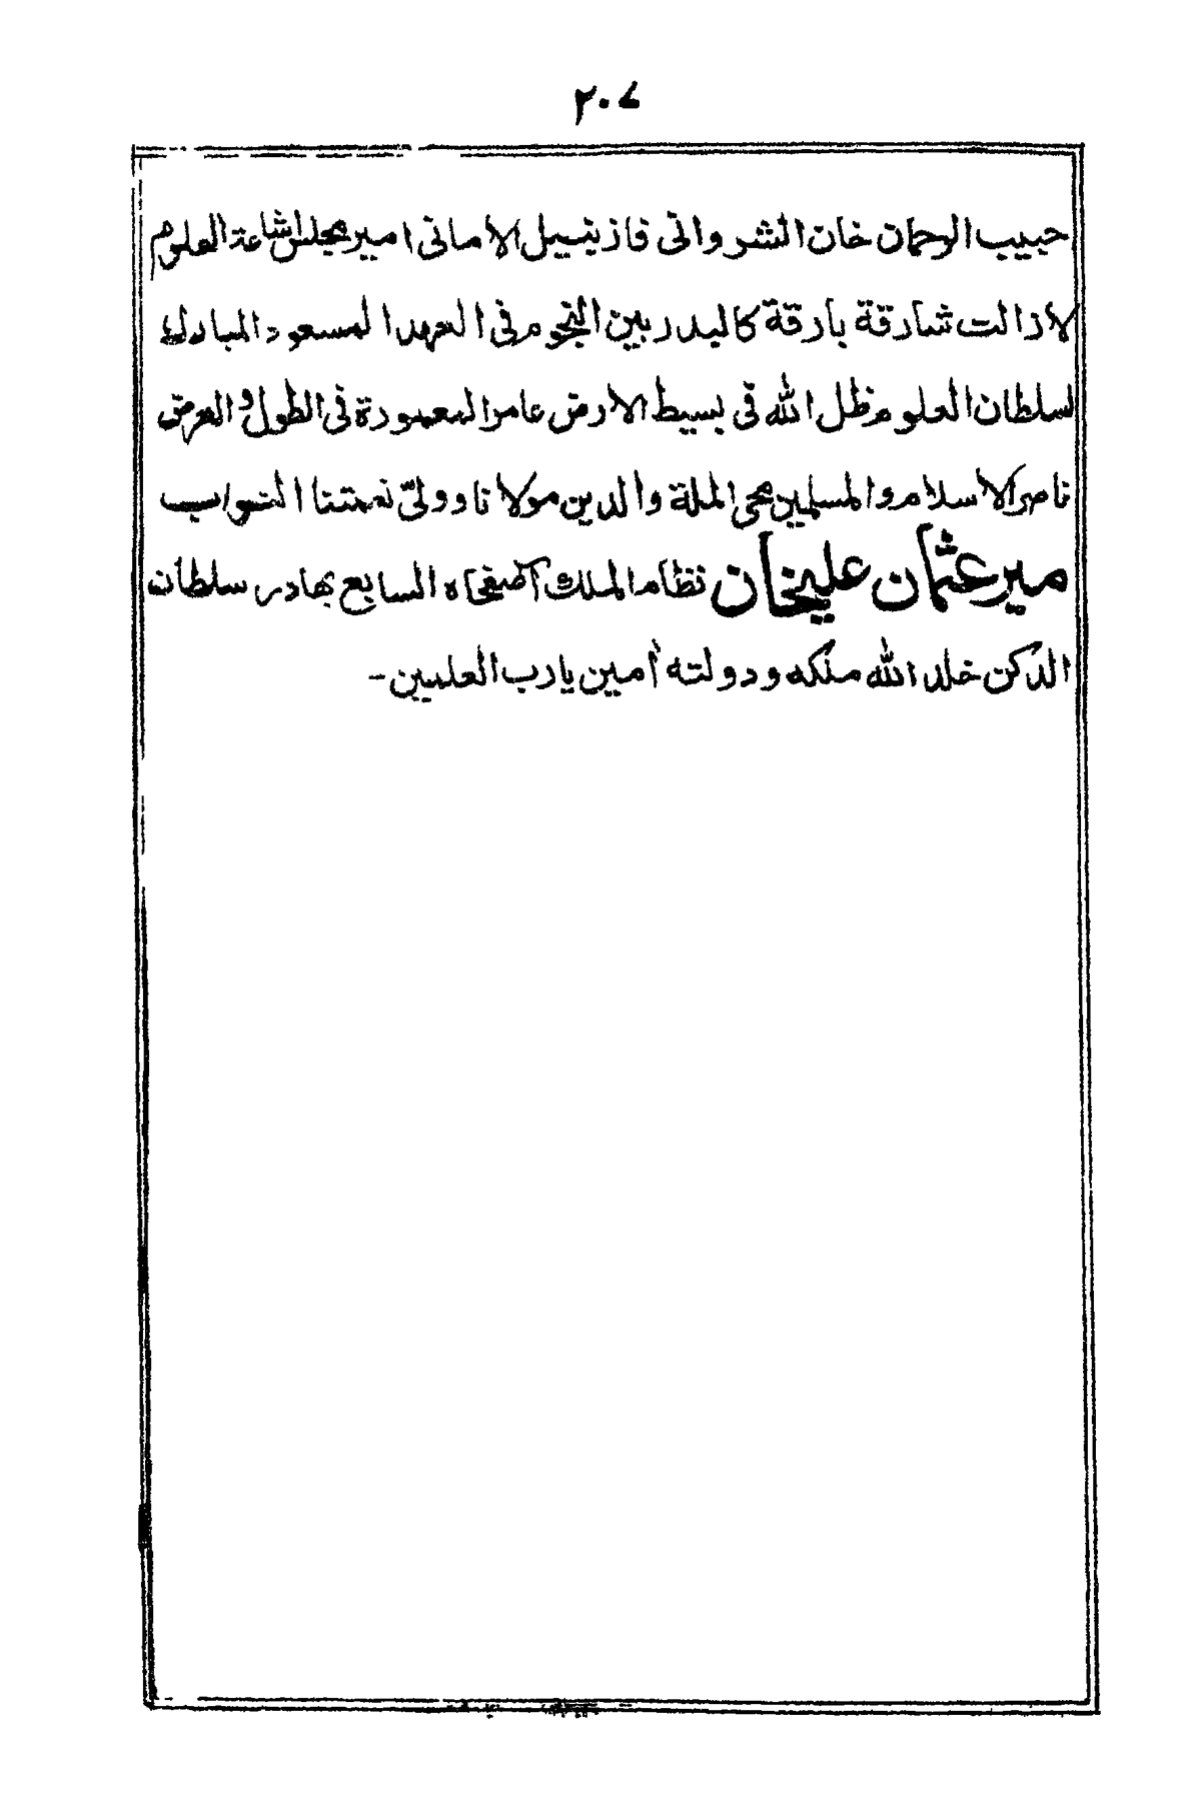 ٢٠٧
حبيب الرحمان خان الشرواني فاز بنيل الأماني امير مجلس اشاعة العلوم
لازالت شارقة بارقة كالبدر بين النجوم في العهد المسعود المبارك
لسلطان العلوم ظل الله في بسيط الارض عامر المعمورة في الطول والعرض
ناصر الاسلام والمسلمين محي الملة والدين مولانا وولیّ نعمتنا النواب
مير عثمان عليخان نظام الملك آصفجاه السابع بهادر سلطان
الدكن خلد الله ملكه ودولته أمين يارب العلمين-